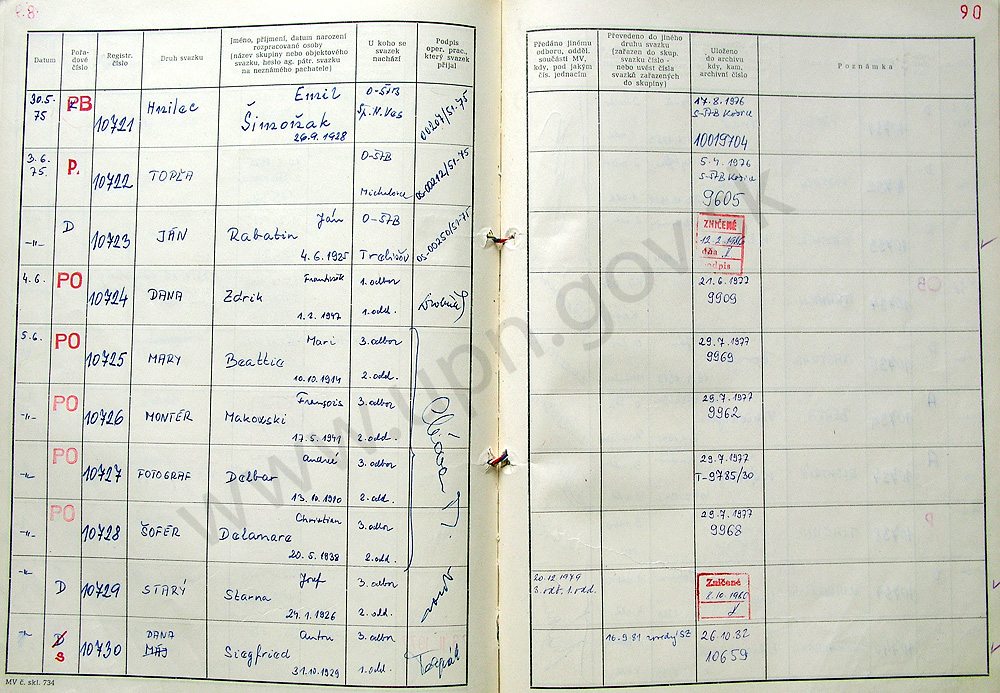 90
Datum
Pořadové číslo
Registr. číslo
Druh svazku
Jméno, příjmení, datum narození
rozpracované osoby
(název skupiny nebo objektového
svazku, heslo ag. pátr. svazku
na neznámého pachatele)
U koho se
svazek
nachází
Podpis
oper. prac.,
který svazek
přijal
Předáno jinému
odboru, odděl.
součásti MV,
kdy, pod jakým
čís. jednacím
Převedeno do jiného
druhu svazku
(zařazen do skup.
svazku číslo -
nebo uvést čísla
svazků zařazených
do skupiny)
Uloženo
do archivu
kdy, kam,
archivní číslo
Poznámka
30.5. 75 PB 10721 Hnilec Emil O-ŠTB
Šimoňák Sp. N. Ves 00207/51-75
26.9.1928
17.8.1976
S-ŠTB Košice
10019704
3.6. 75. P. 10722 TOPĽA O-ŠTB
Michalovce OS-00212/51-75
5.4.1976
S-ŠTB Košice
9605
-11- D 10723 JÁN Ján O-ŠTB
Rabatin
4.6.1925 Trebišov OS-00250/51-75
ZNIČENÉ
dňa
podpis
4.6. PO 10724 DANA František 1. odbor
Zdrik
1.2.1947 1. odd.
21.6.1977
9909
5.6. PO 10725 MARY Mari 3. odbor
Beattie
10.10.1914 2. odd.
29.7.1977
9969
-11- PO 10726 MONTÉR François 3. odbor
Makowski
17.5.1941 2. odd.
29.7.1977
9962
-11- PO 10727 FOTOGRAF André 3. odbor
Delbar
13.10.1910 2. odd.
29.7.1977
T-9785/30
-11- PO 10728 ŠOFÉR Christian 3. odbor
Delamare
20.5.1938 2. odd.
29.7.1977
9968
-11- D 10729 STARÝ Jozef 3. odbor
Starna
24.1.1926 2. odd.
20.12.1979
3. odb. 1. odd.
Zničené
-11- D S 10730 DANA MÁJ Anton 3. odbor
Siegfried
31.10.1929 1. odd.
26.10.82
10659
MV č. skl. 734
www.upn.gov.sk